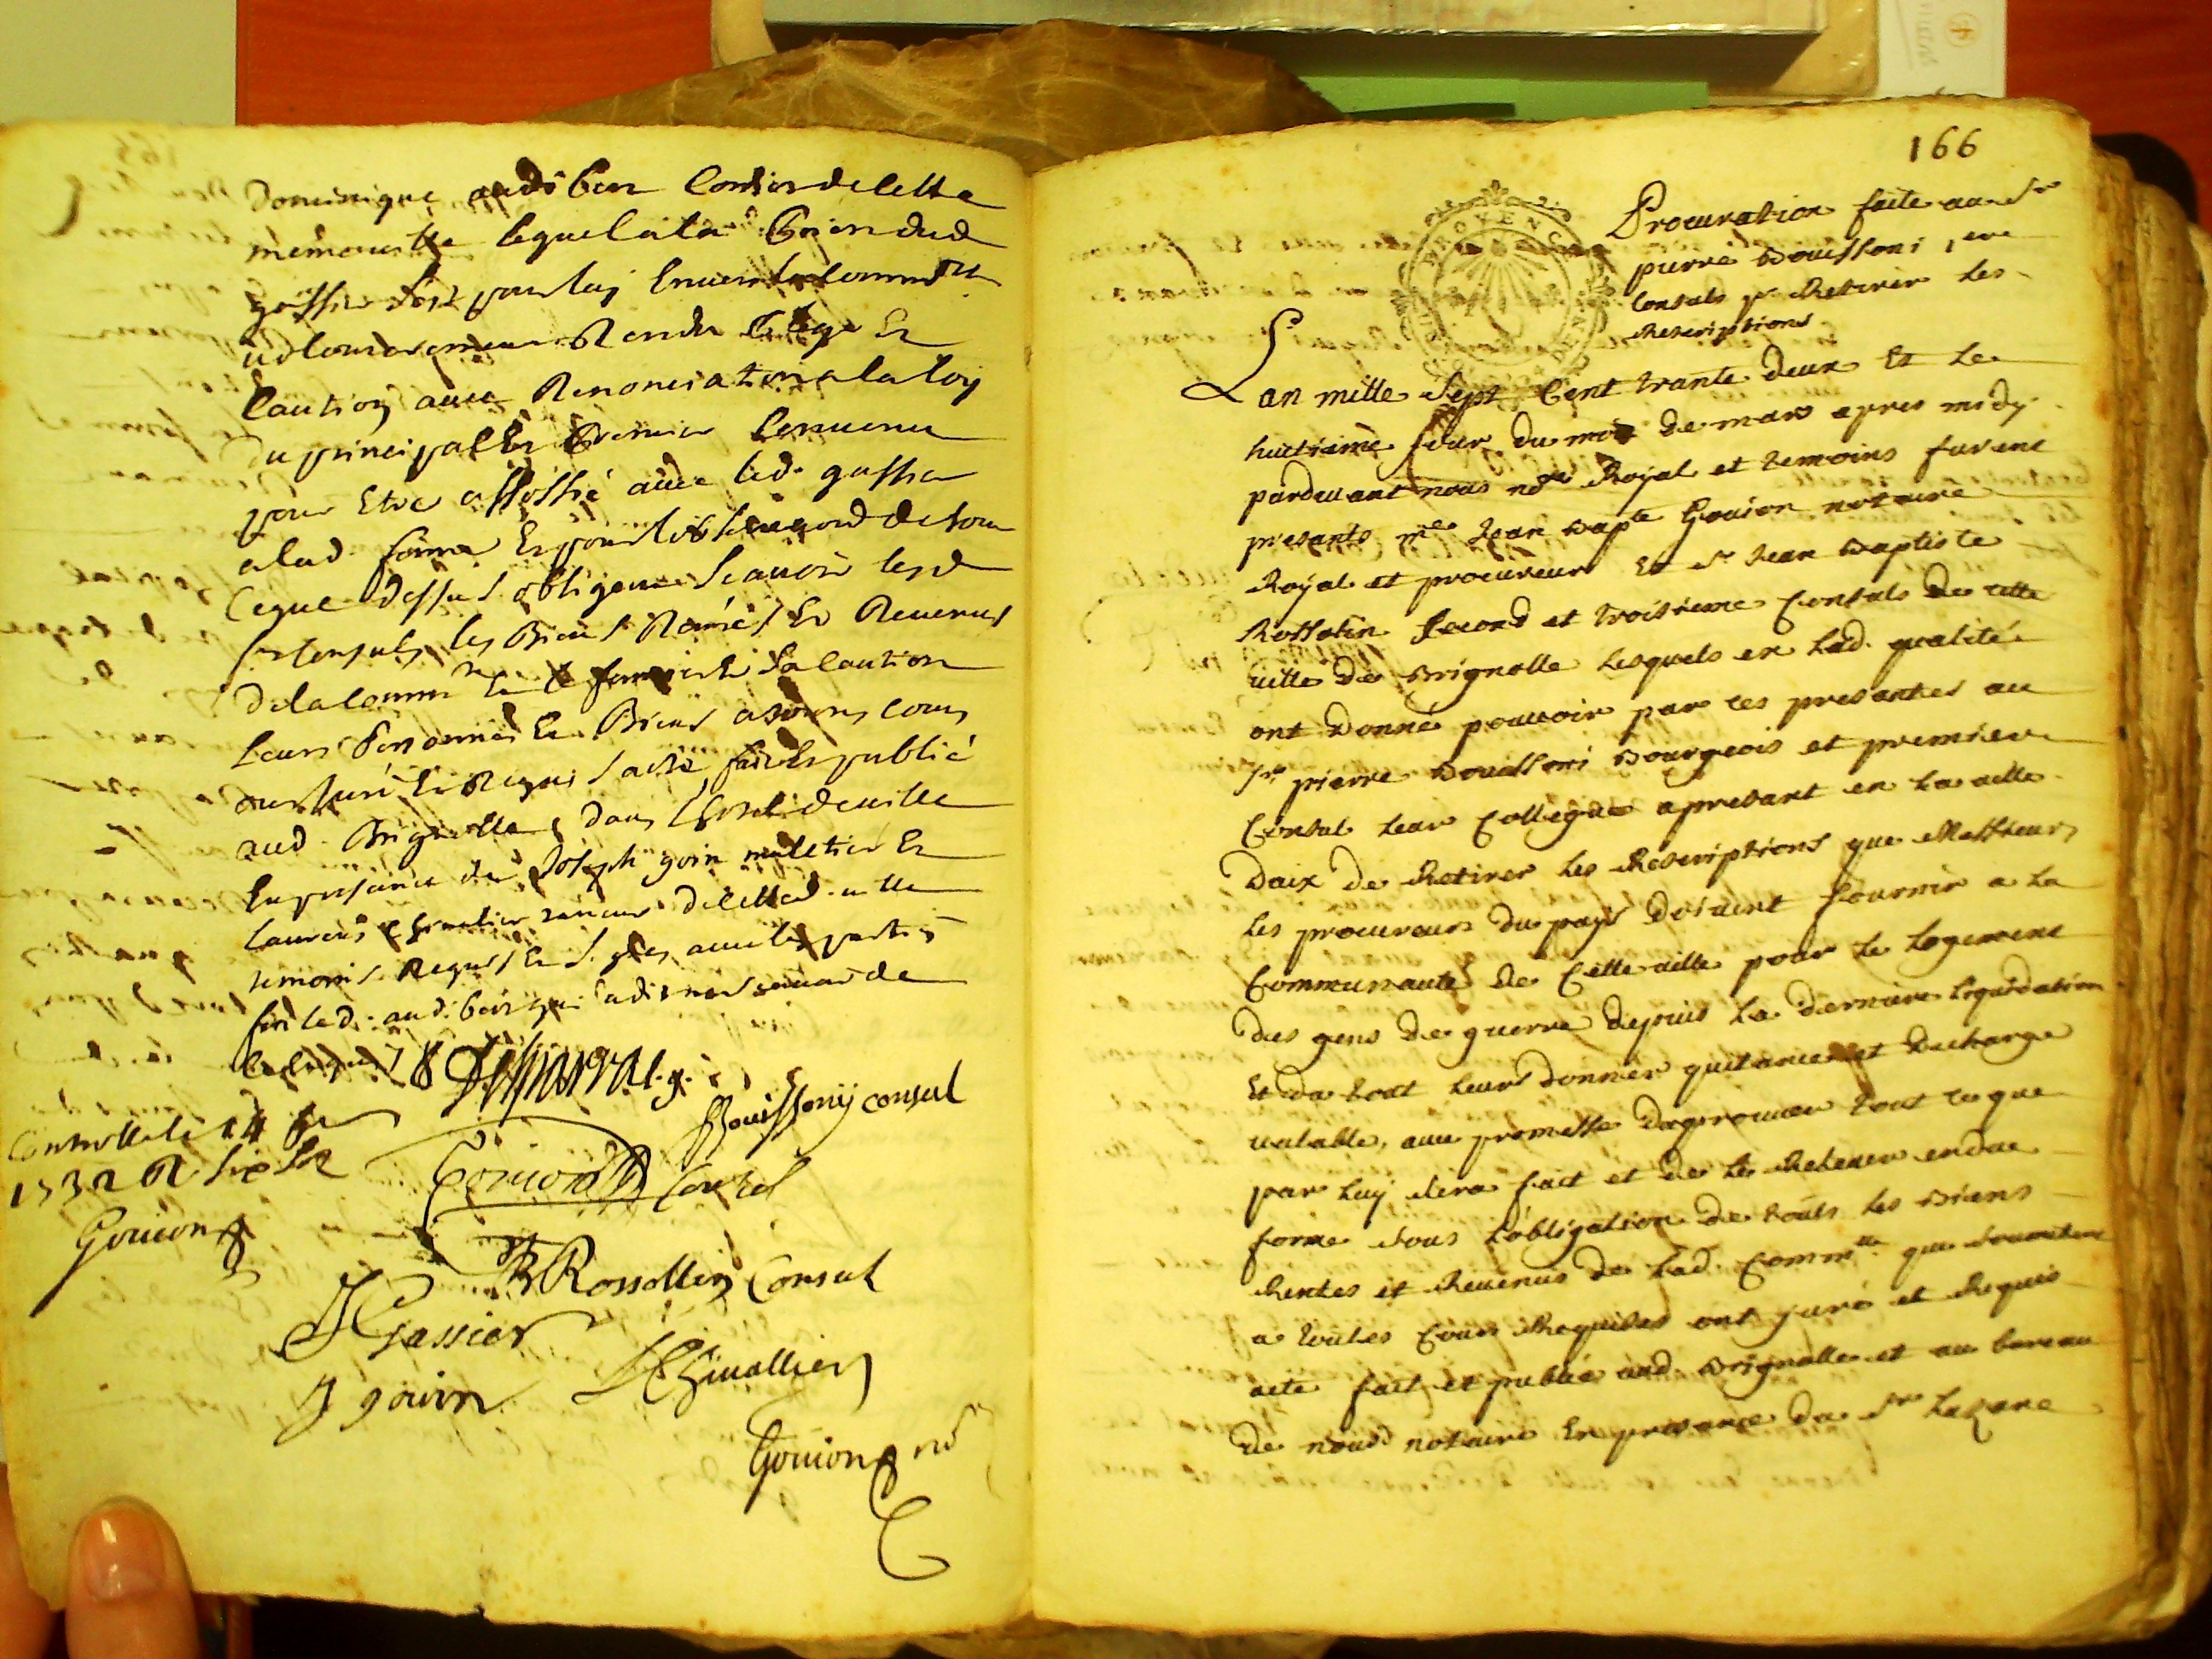 Dominique audiber Cordier de cette
meme ville lequel a la priere dud
gassier sest pour luy envers la commté
Caution avec Renonciation a la loy
du principal et premier convenu
pour Etre assossié avec led. gassier
a lad. ferme Et pour lobservaon de tout
Ceque dessus obligent scavoir lesd
srs Consuls les Biens Rentes Et Revenus
dela commté Et le fermier Et sa caution
Leurs Personnes Et Biens a toutes cours
ont Juré Et Requis acte fait Et publié
aud. Brignolle dans lhotel de ville
En presence de Joseph goin muletier Et
Laurens Chivalier de cette d. ville
temoins Requis Et signes avec les parties
fors led. audiber qui a dit ne scavoir de
ce Requis
Bouissony consul
Controllé le
1732 R six sols
Gouion Consul
Gouion
JB Rossollin Consul
J Gassier
J gouin L Chivallier
Gouion nore
166
PROVENCE
Procuration faite au Sr
pierre Bouissoni 1er
Consuls pr Retirer les
Rescriptions
Lan mille Sept Cent trante deux Et le
huictieme jour du mois de mars apres midy
pardevant nous nore Royal et temoins furent
presants me Jean Bapte Gouion notaire
Royal et procureur Et sr Jean Baptiste
Rossolin second et troisieme Consuls de cette
ville de Brignolle lesquels en lad. qualité
ont donné pouvoir par ces presantes au
sr pierre Bouissoni Bourgeois et premier
Consul leur Collegue apresant en la ville
Daix de Retirer les Rescriptions que Messieurs
les procureurs du pays doivent fournir a la
Communauté de Cette ville pour le logement
des gens de guerre depuis la derniere liquidation
Et du tout leur donner quitance et decharge
valable, avec promesse daprouver tout ce que
par luy sera fait et de le Relever en due
forme sous lobligation de touts les Biens
Rentes et Revenus de lad. Commté que soumettent
a toutes Cours Requises ont juré et Requis
acte fait et publié aud. Brignolle et au bureau
de nous notaire En presance de Sr Lazare